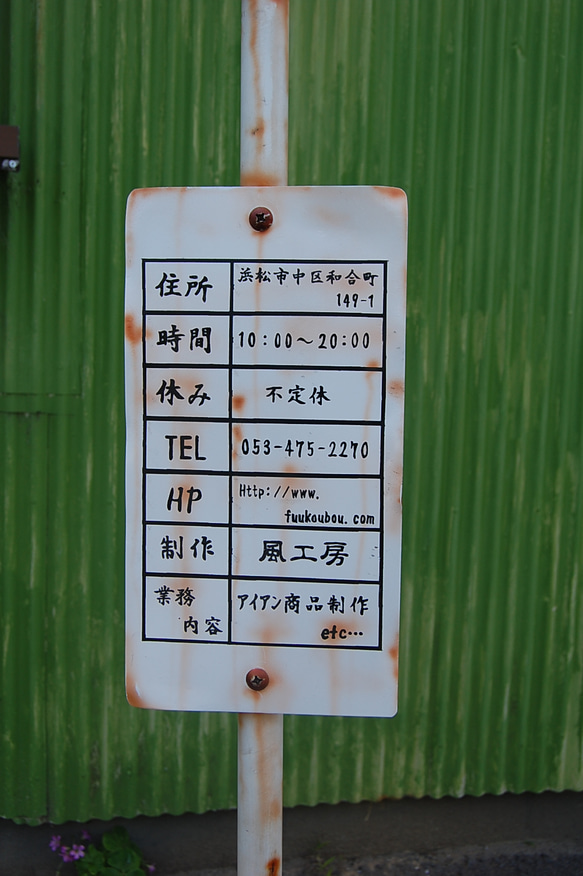 住所 浜松市中区和合町
149-1
時間 10:00～20:00
休み 不定休
TEL 053-475-2270
HP Http://www.
fuukoubou.com
制作 風工房
業務 アイアン商品制作
内容 etc…